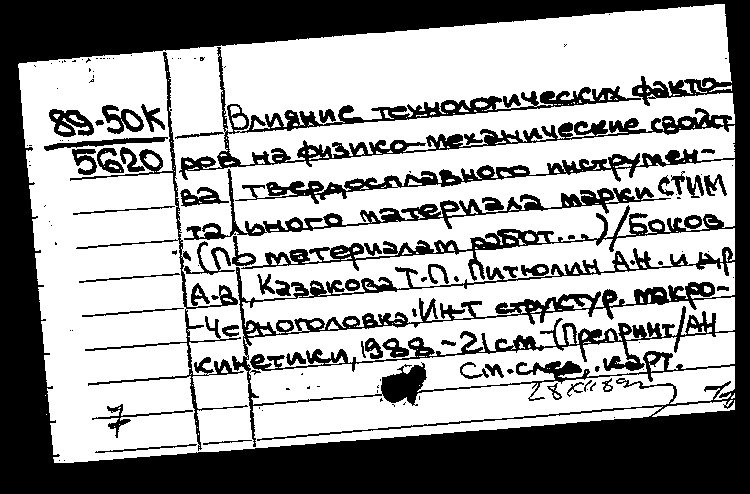 89-50К
5620
Влияние технологических факто-
ров на физико-механические свойст
ва твердосплавного инструмен-
тального материала марки СТИМ
:(По материалам работ...)/Боков
А.В., Казакова Т.П., Питюлин А.Н. и др
-Черноголовка: Ин-т структур. макро-
кинетики, 1988.-21см.-(Препринт/АН
см. след. карт.
7